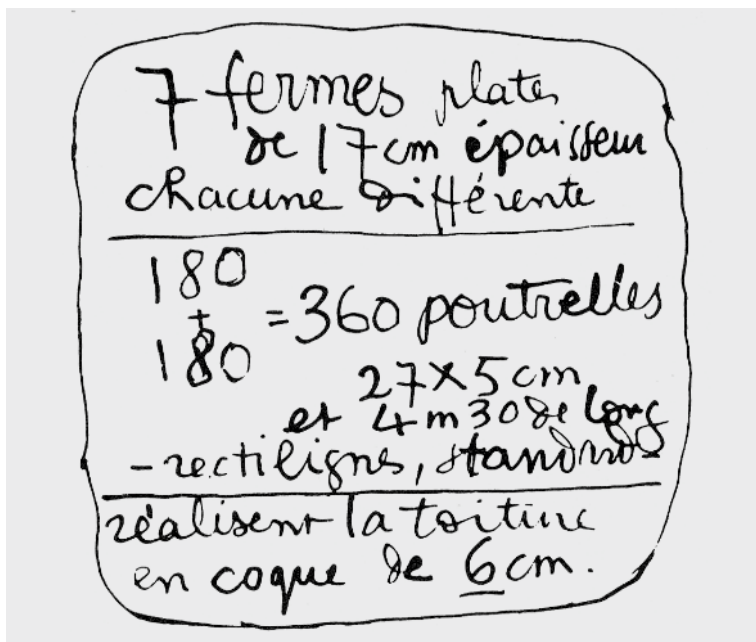 7 fermes plates
de 17 cm épaisseur
chacune différente
180
+
180
= 360 poutrelles
27 x 5 cm
et 4 m 30 de long
- rectilignes, standards -
réalisent la toiture
en coque de 6 cm.